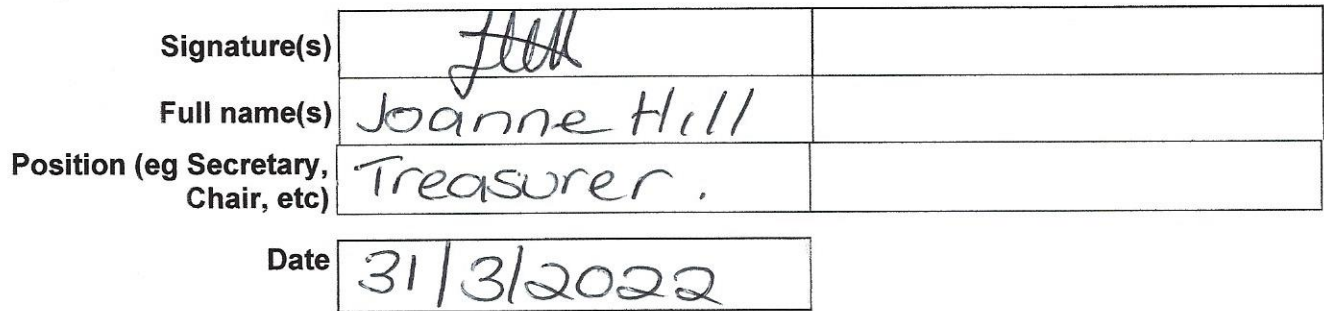 Signature(s)
Full name(s) Joanne Hill
Position (eg Secretary, Chair, etc) Treasurer.
Date 31/3/2022